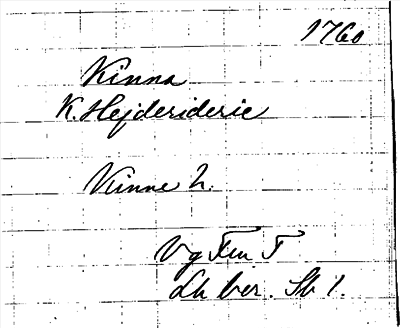 1760
Kinna
K. Hejderiderie
Kinne h.
Vg Ften F
Lh ber. Sb 1.